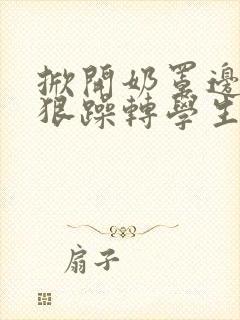 掀開奶罩邊
狠躁轉學生
扇子